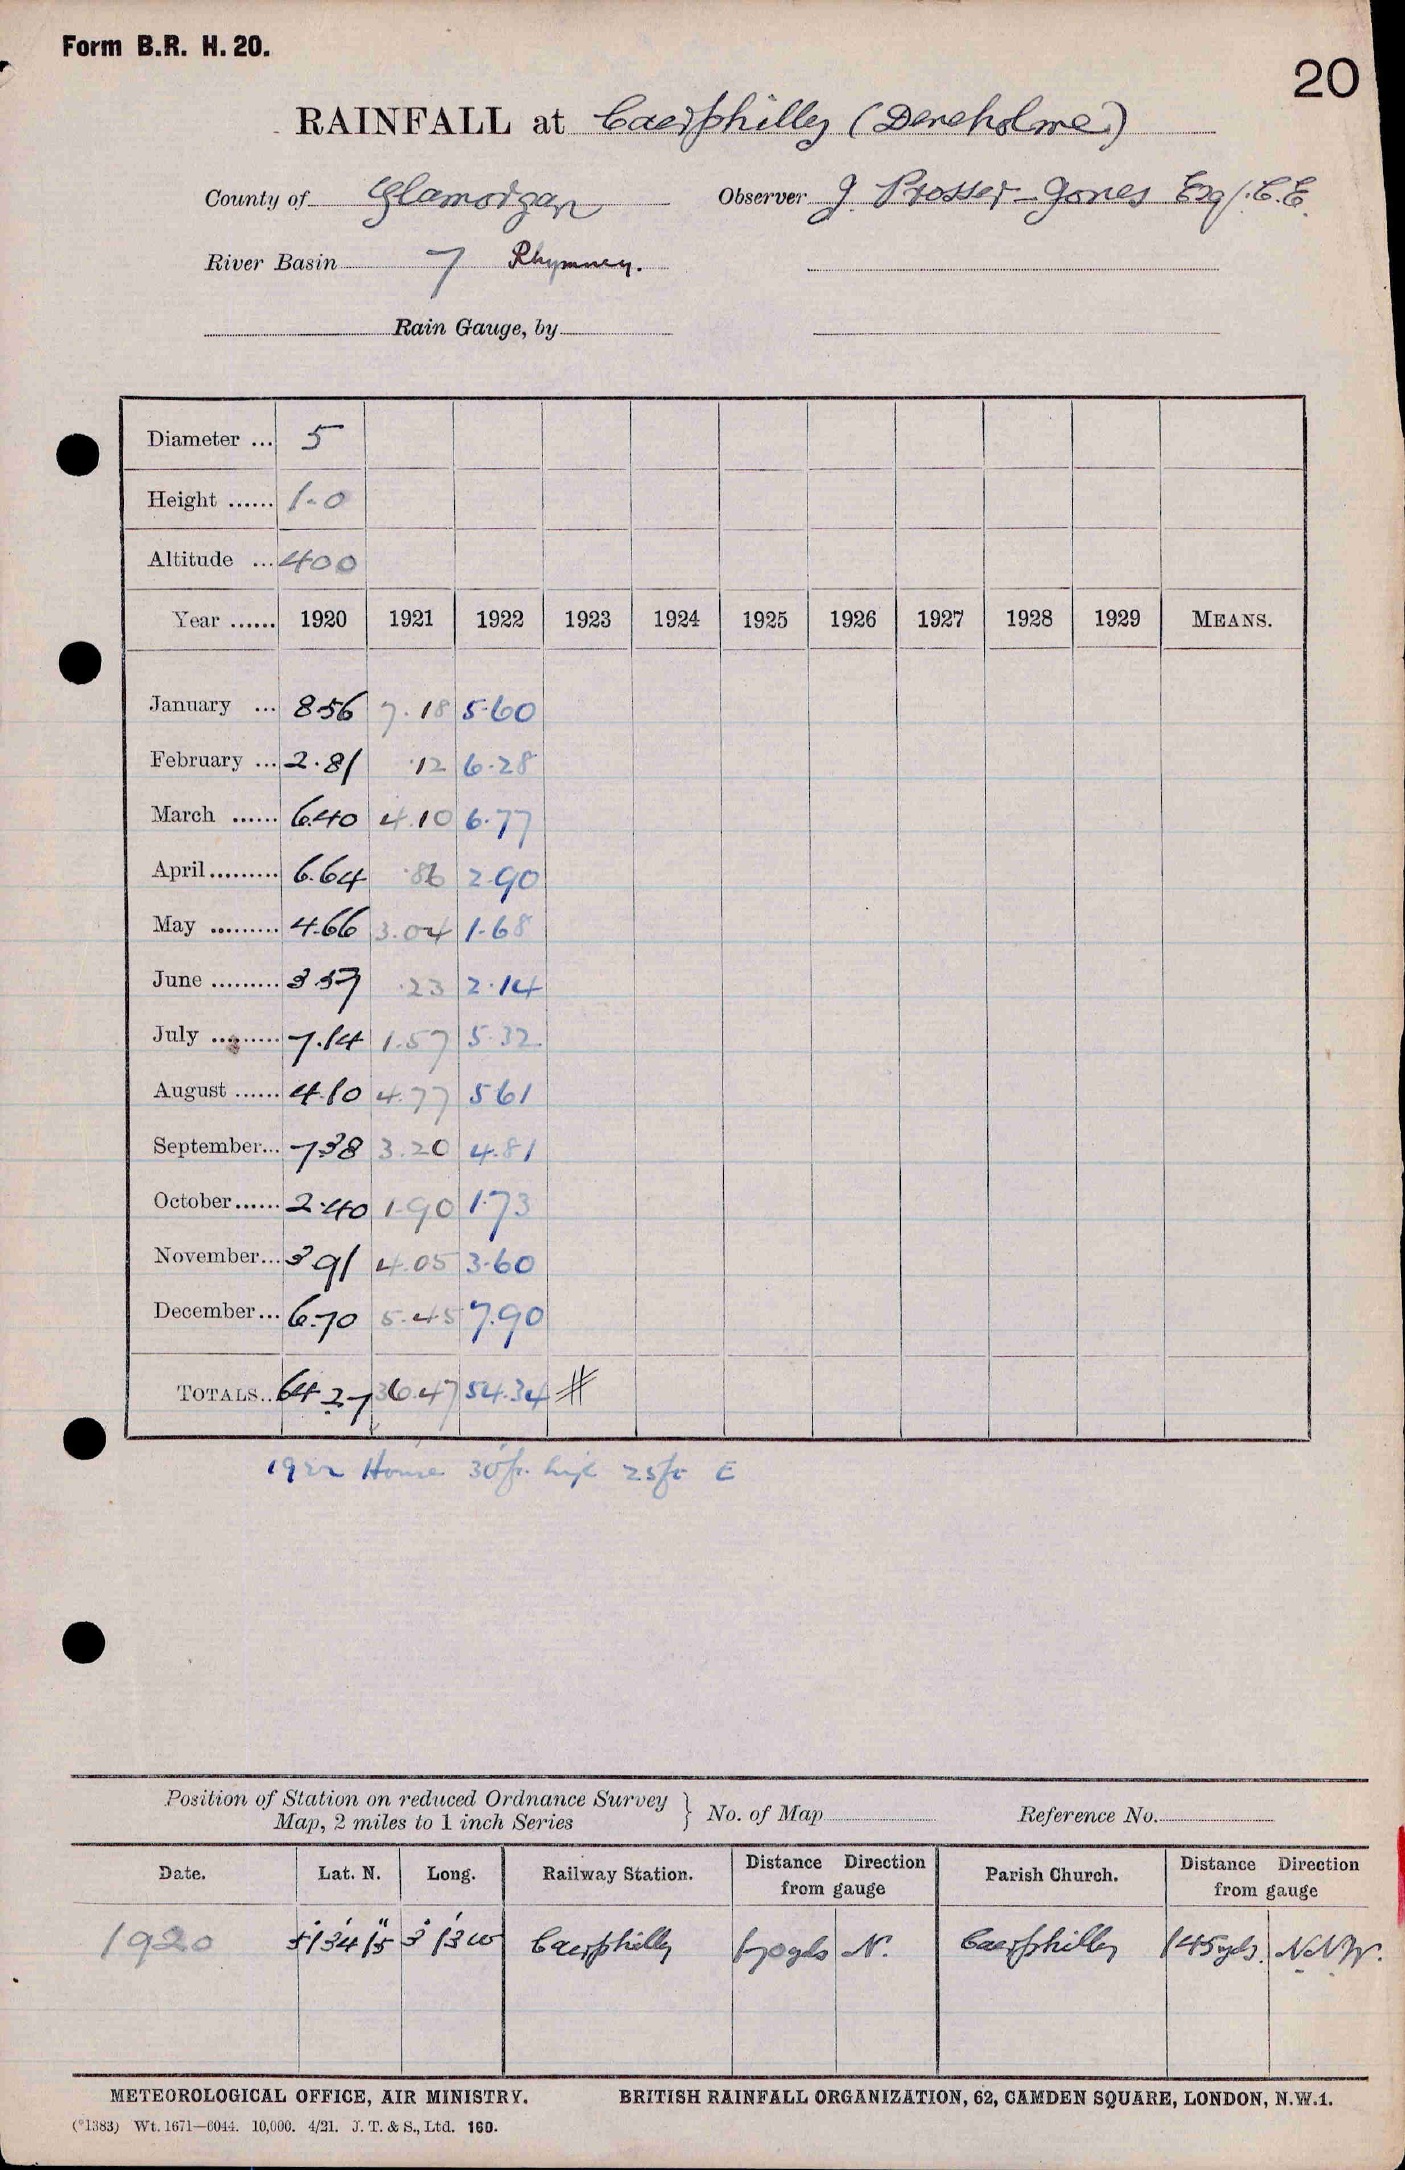 Form B.R. H. 20.
20
RAINFALL at Caerphilly (Dereholme)
County of Glamorgan Observer J. Prosser-Jones Esq/. C.E.
River Basin 7 Rhymney.
Rain Gauge, by
Diameter ... 5
Height ...... 1-0
Altitude ... 400
Year ...... 1920 1921 1922 1923 1924 1925 1926 1927 1928 1929 MEANS.
January ... 8.56 7.18 5.60
February ... 2.81 .12 6.28
March ...... 6.40 4.10 6.77
April ......... 6.64 .86 2.90
May ......... 4.66 3.04 1.68
June ......... 3.57 .23 2.14
July ......... 7.14 1.57 5.32
August ...... 4.10 4.77 5.61
September... 7.38 3.20 4.81
October ...... 2.40 1.90 1.73
November... 3.91 4.05 3.60
December ... 6.70 5.45 7.90
TOTALS.. 64.27 36.47 54.34 #
1922 House 30ft. high 25ft E
Position of Station on reduced Ordnance Survey
Map, 2 miles to 1 inch Series } No. of Map Reference No.
Date. Lat. N. Long. Railway Station. Distance Direction from gauge Parish Church. Distance Direction from gauge
1920 51° 34' 15" 3° 13' W Caerphilly 170yds N. Caerphilly 145yds. N.N.W.
METEOROLOGICAL OFFICE, AIR MINISTRY. BRITISH RAINFALL ORGANIZATION, 62, CAMDEN SQUARE, LONDON, N.W.1.
(*1383) Wt. 1671—6044. 10,000. 4/21. J. T. & S., Ltd. 160.